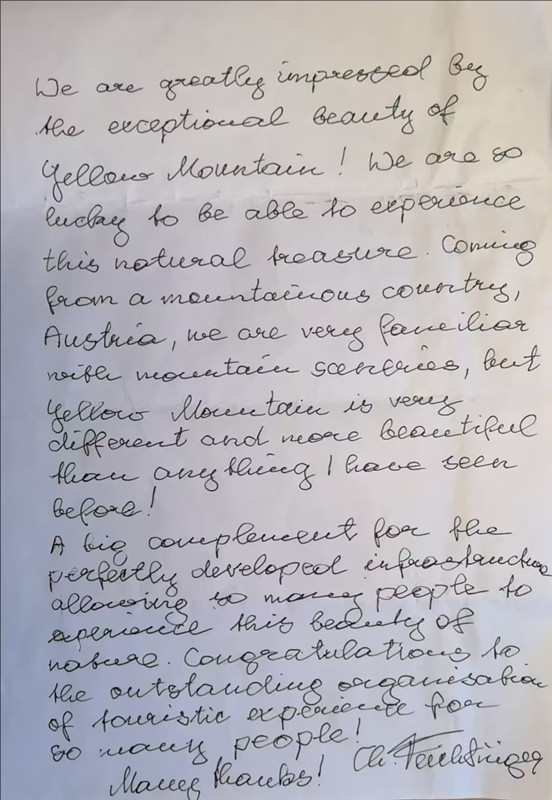 We are greatly impressed by
the exceptional beauty of
Yellow Mountain! We are so
lucky to be able to experience
this natural treasure. Coming
from a mountainous country,
Austria, we are very familiar
with mountain sceneries, but
Yellow Mountain is very
different and more beautiful
than anything I have seen
before!
A big complement for the
perfectly developed infrastructure
allowing so many people to
experience this beauty of
nature. Congratulations to
the outstanding organisation
of touristic experience for
so many people!
Many thanks! Ch.